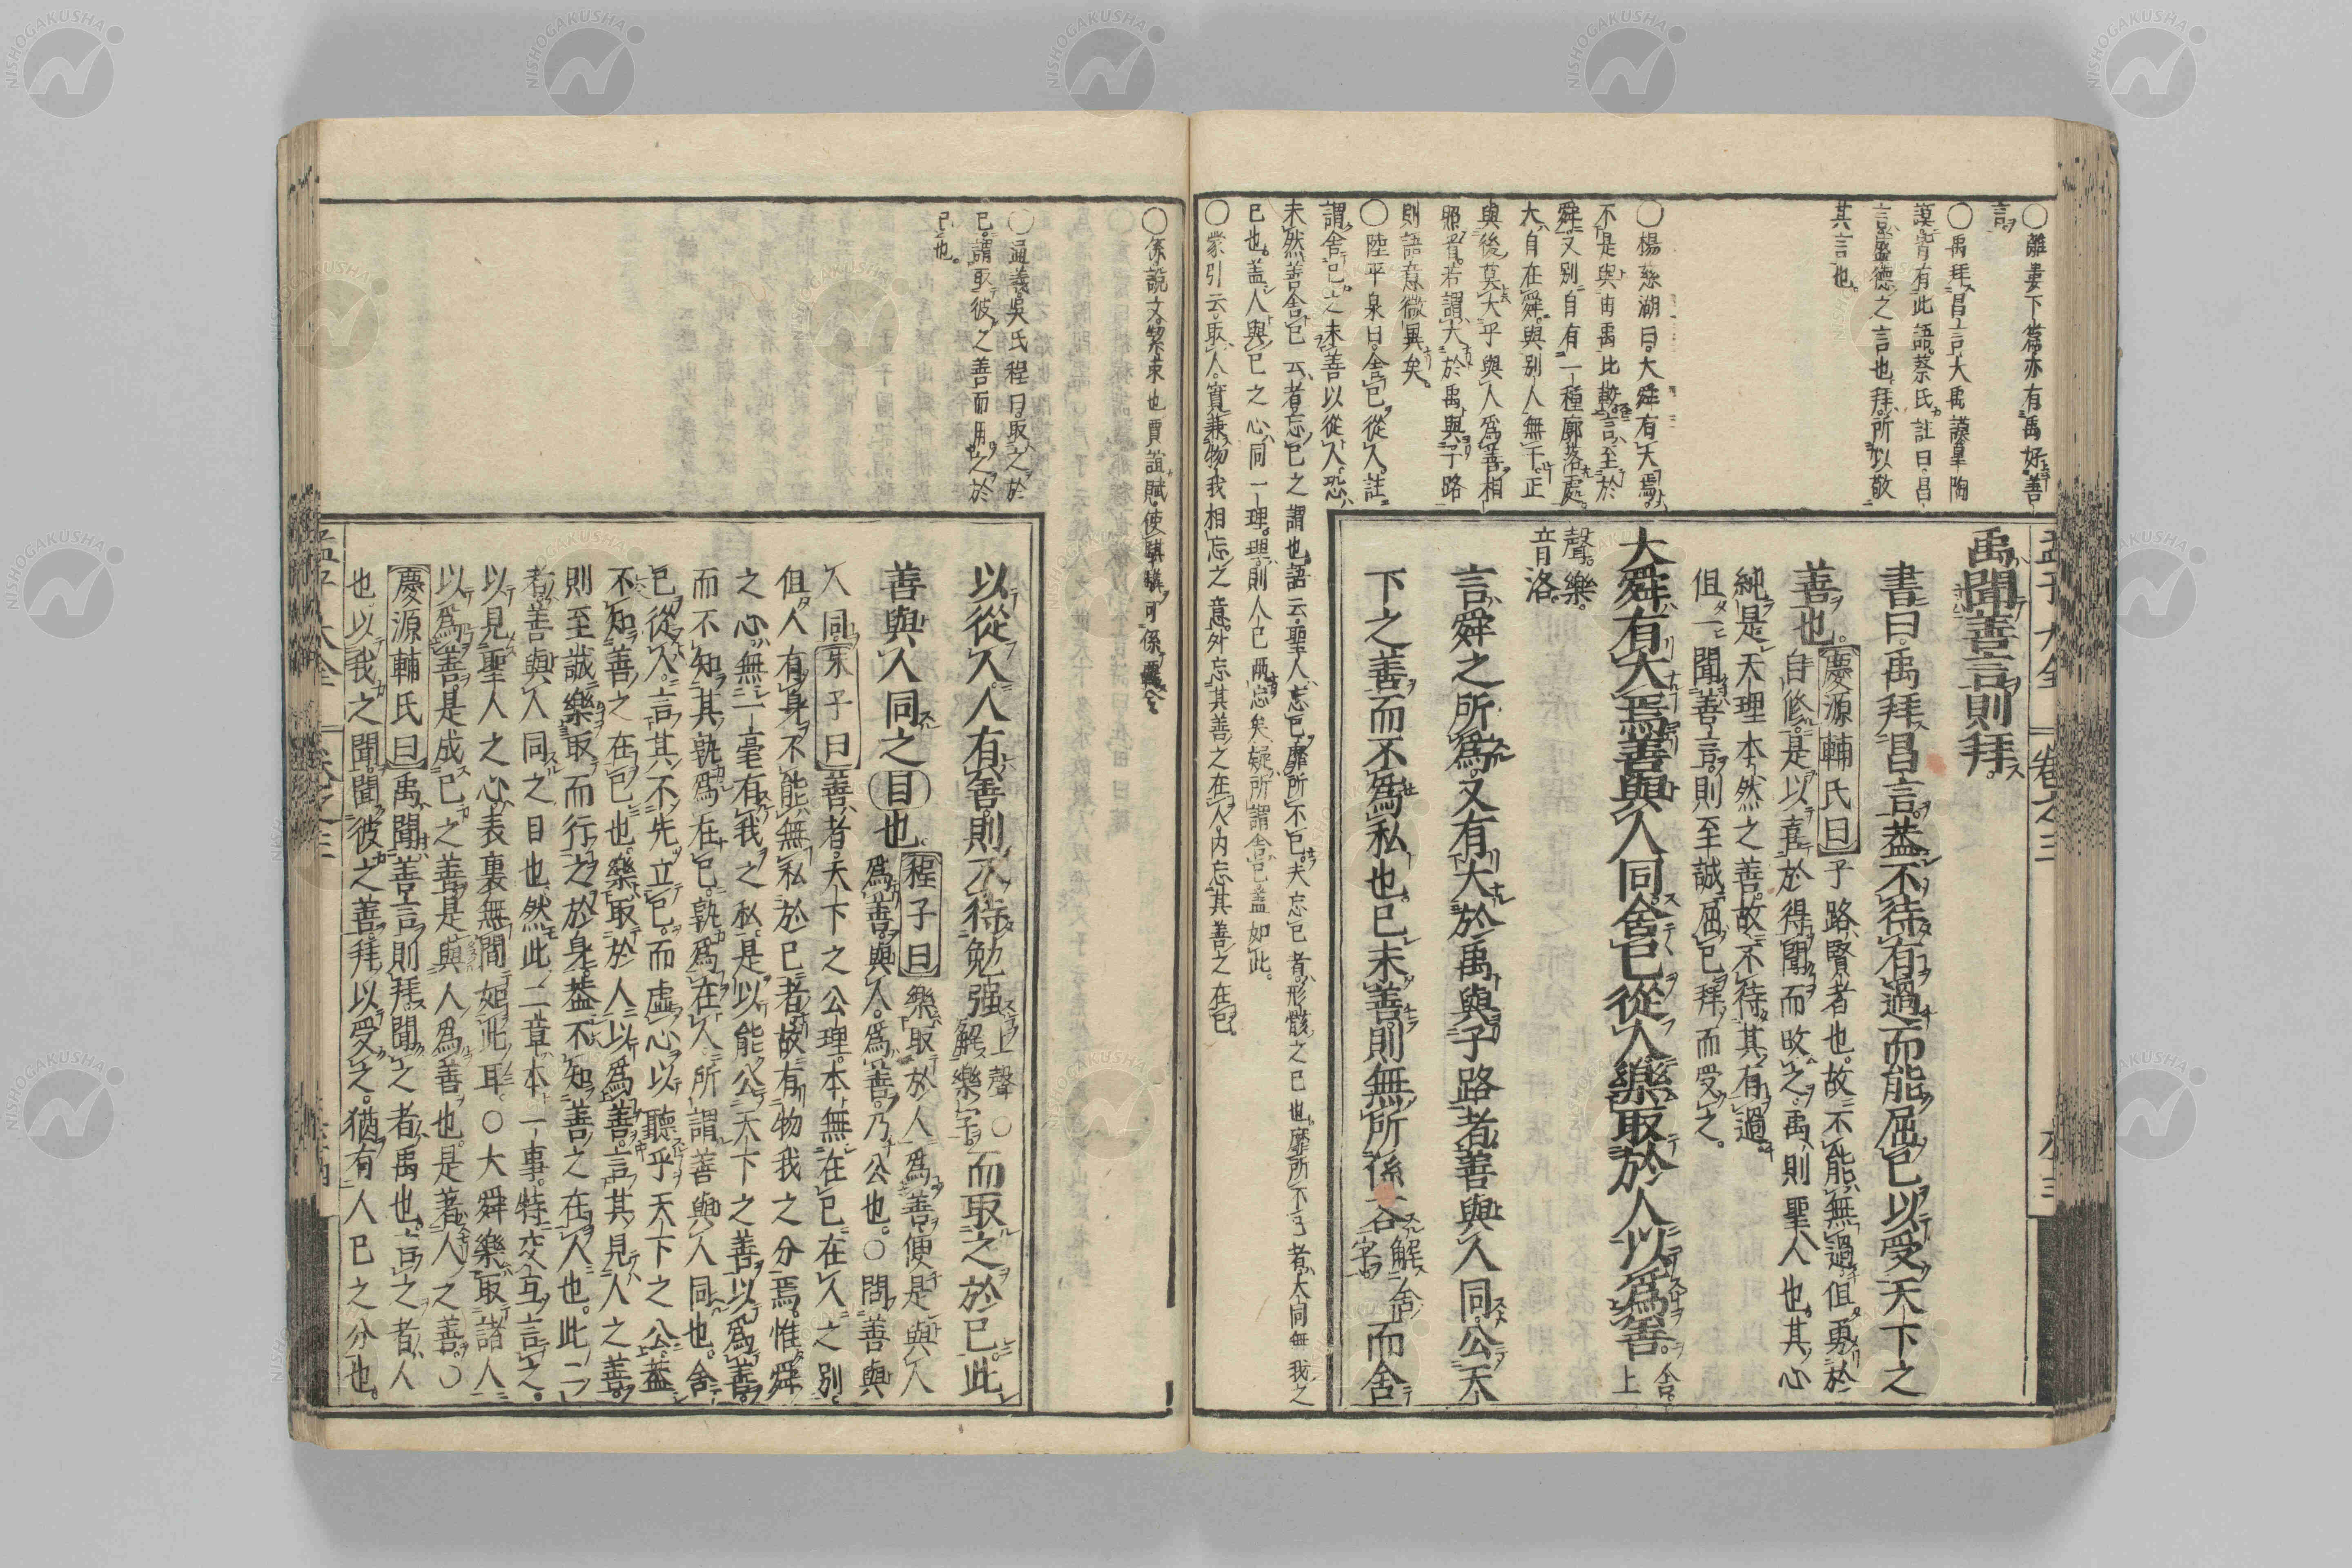 ○離婁下篇亦有禹好善
言
○禹拜昌言大禹謨皐陶
謨皆有此語蔡氏註曰昌
言盛德之言也拜所以敬
其言也
○楊慈湖曰大舜有大焉
不是與由禹比較言至於
舜又別自有一種廓落處
大自在舜與別人無干正
與後莫大乎與人爲善相
照看若謂大於禹與子路
則語意微異矣
○陸平泉曰舍己從人註
謂舍己之未善以從人恐
未然善舍己云者忘己之謂也語云聖人忘己靡所不己夫忘己者形骸之己也靡所不己者大同無我之
己也蓋人與己之心同一理理則人己兩忘矣疑所謂舍己蓋如此
○蒙引云取人實兼物我相忘之意外忘其善之在人内忘其善之在己
孟子大全 卷之三
禹聞善言則拜
書曰禹拜昌言蓋不待有過而能屈己以受天下之
善也
慶源輔氏曰子路賢者也故不能無過但勇於
自修是以喜於得聞而改之禹則聖人也其心
純是天理本然之善故不待其有過
但一聞善言則至誠屈己拜而受之
大舜有大焉善與人同舍己從人樂取於人以爲善舍上
聲樂
音洛
言舜之所爲又有大於禹與子路者善與人同公天
下之善而不爲私也己未善則無所係吝解舍字而舍
○係說文繫束也賈誼賦使騏驥可係羈兮
○通義吳氏程曰取之於
己謂取彼之善而用之於
己也
以從人人有善則不待勉强上聲○解樂字而取之於己此
善與人同之目也
程子曰樂取於人爲善便是與人
爲善與人爲善乃公也○問善與
人同朱子曰善者天下之公理本無在己在人之別
但人有身不能無私於己者故有物我之分焉惟舜
之心無一毫有我之私是以能公天下之善以爲善
而不知其孰爲在己孰爲在人所謂善與人同也舍
己從人言其不先立己而虛心以聽乎天下之公蓋
不知善之在己也樂取於人以爲善言其見人之善
則至誠樂取而行之於身蓋不知善之在人也此二
者善與人同之目也然此二章本一事特交互言之
以見聖人之心表裏無間如此耳○大舜樂取諸人
以爲善是成己之善是與人爲善也是著人之善○
慶源輔氏曰禹聞善言則拜聞之者禹也言之者人
也以我之聞聞彼之善拜以受之猶有人己之分也